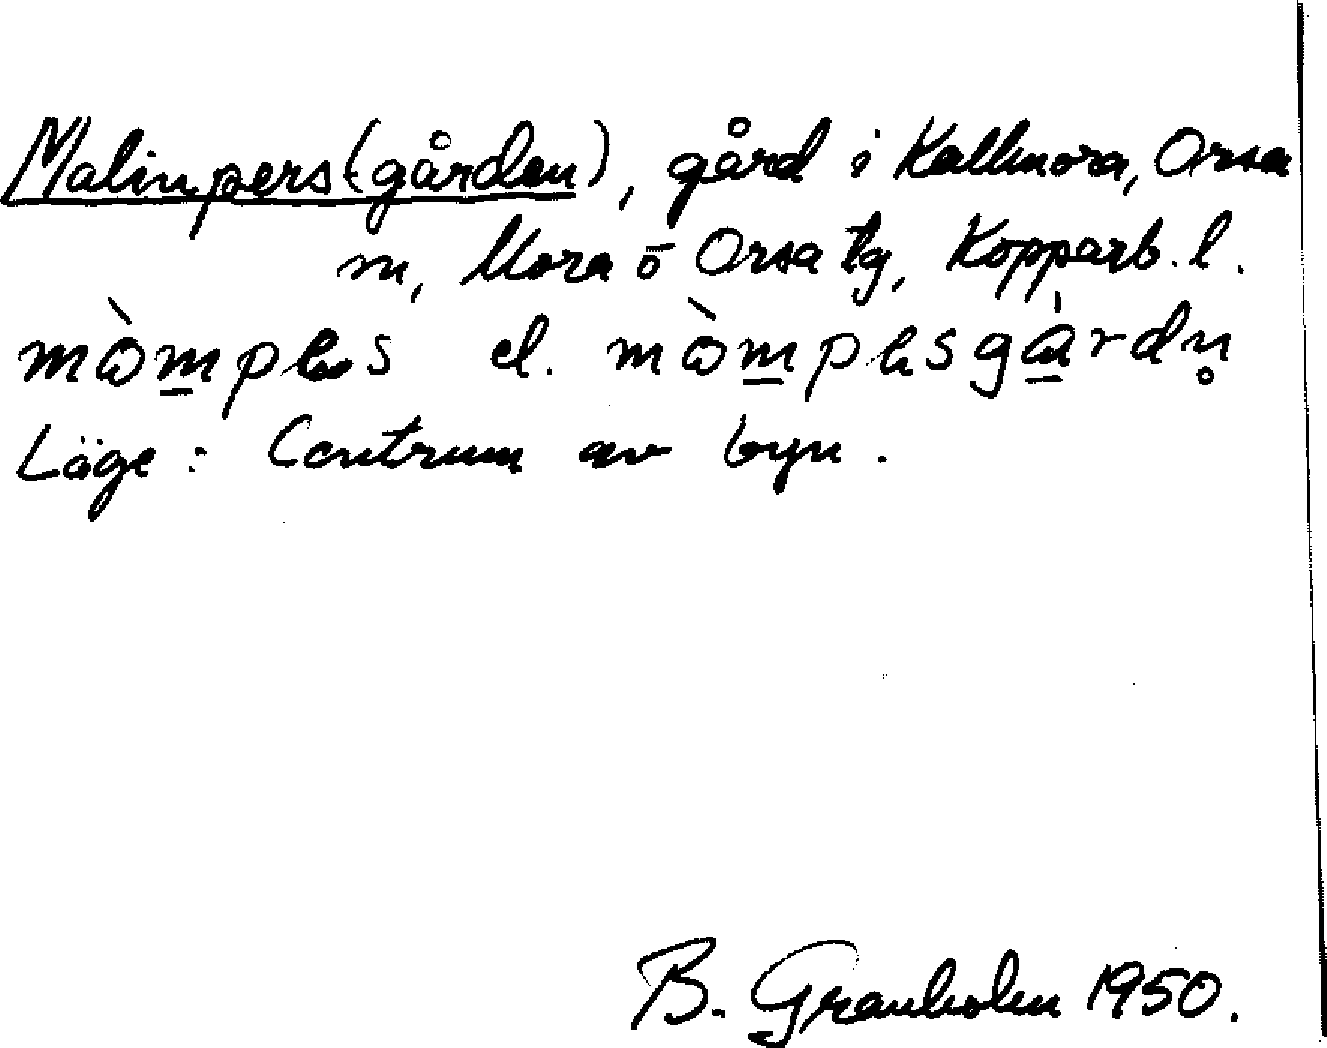 Malinpers(gården), gård i Kallmora, Orsa
m, Mora o Orsa tg, Kopparb. l.
el.
Läge: Centrum av byn.
B. Granholm 1950.